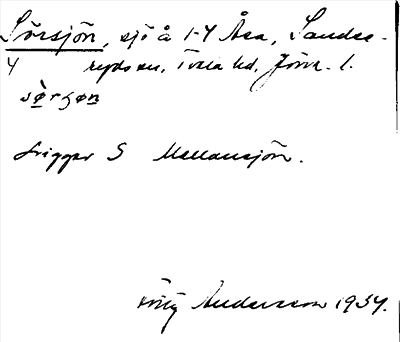 Sörsjön, sjö å 1-4 Åsa, Sandse-
4 ryds sn, Tveta hd, Jönk. l.
sö̀rʃøn
Ligger S Mellansjön.
Andersson 1934.